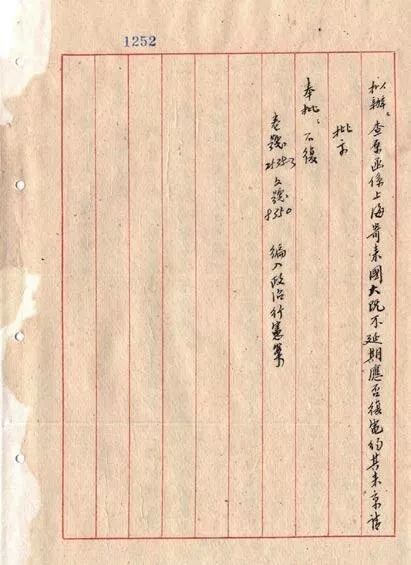 1252
拟辦:查原函係上海寄來國大既不延期應否復電約其來京請
批示
奉批:不復
卷號25353文號8350 編入政治行憲案